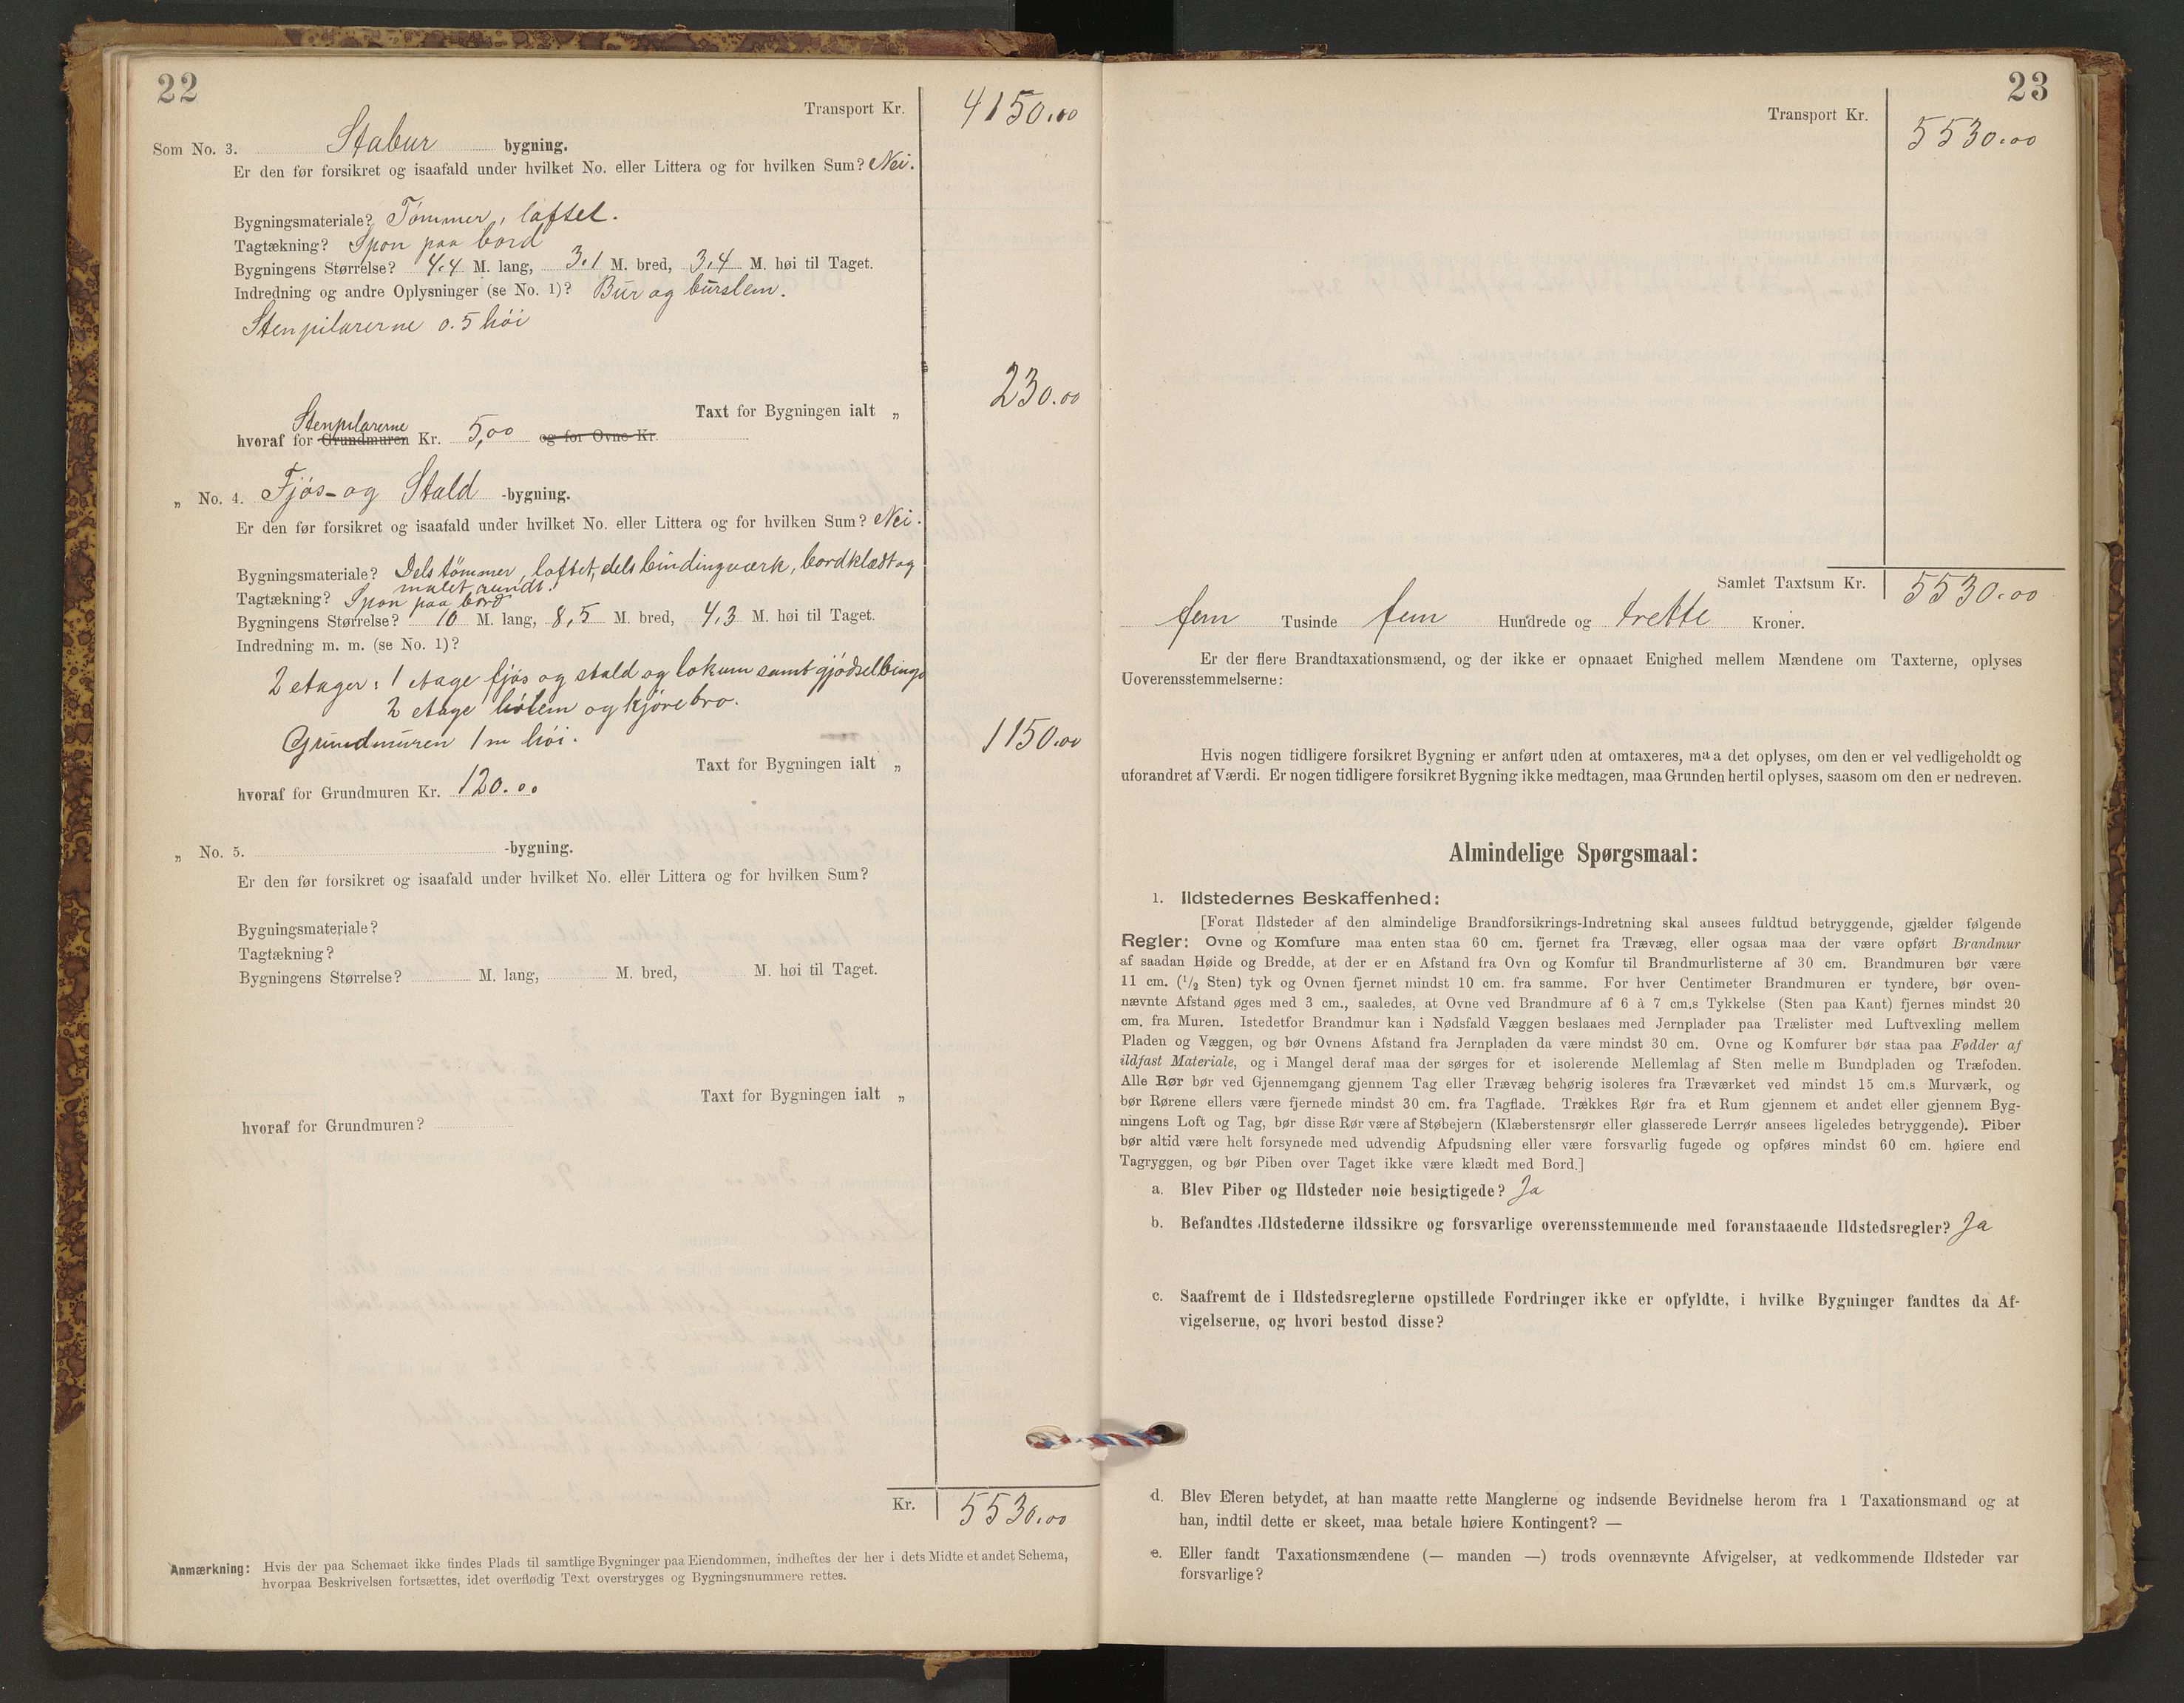 22
Transport Kr. 4150.00
Som No. 3. Stabur bygning.
Er den før forsikret og isaafald under hvilket No. eller Littera og for hvilken Sum? Nei.
Bygningsmateriale? Tømmer, laftet.
Tagtækning? Spon paa bord
Bygningens Størrelse? 4.4 M. lang, 3.1 M. bred, 3.4 M. høi til Taget.
Indredning og andre Oplysninger (se No. 1)? Bur og burslem.
Stenpilarerne 0.5 høi
Taxt for Bygningen ialt „ 230.00
Stenpilarerne
hvoraf for Grundmuren Kr. 5,00 og for Ovne Kr.
„ No. 4. Fjøs- og Stald -bygning.
Er den før forsikret og isaafald under hvilket No. eller Littera og for hvilken Sum? Nei.
Bygningsmateriale? Dels tømmer, laftet, dels bindingværk, bordklædt og
malet rundt.
Tagtækning? Spon paa bord
Bygningens Størrelse? 10 M. lang, 8,5 M. bred, 4,3 M. høi til Taget.
Indredning m. m. (se No. 1)?
2 etager: 1 etage fjøs og stald og lokum samt gjødselbinge
2 etage høtem og kjørebro.
Grundmuren 1 m høi.
Taxt for Bygningen ialt „ 1150.00
hvoraf for Grundmuren Kr. 120.00
„ No. 5. -bygning.
Er den før forsikret og isaafald under hvilket No. eller Littera og for hvilken Sum?
Bygningsmateriale?
Tagtækning?
Bygningens Størrelse? M. lang, M. bred, M. høi til Taget.
Taxt for Bygningen ialt „
hvoraf for Grundmuren?
Kr. 5530.00
Anmærkning: Hvis der paa Schemaet ikke findes Plads til samtlige Bygninger paa Eiendommen, indheftes der her i dets Midte et andet Schema,
hvorpaa Beskrivelsen fortsættes, idet overflødig Text overstryges og Bygningsnummere rettes.
23
Transport Kr. 5530.00
Samlet Taxtsum Kr. 5530.00
fem Tusinde fem Hundrede og trette Kroner.
Er der flere Brandtaxationsmænd, og der ikke er opnaaet Enighed mellem Mændene om Taxterne, oplyses
Uoverensstemmelserne:
Hvis nogen tidligere forsikret Bygning er anført uden at omtaxeres, maa det oplyses, om den er vel vedligeholdt og
uforandret af Værdi. Er nogen tidligere forsikret Bygning ikke medtagen, maa Grunden hertil oplyses, saasom om den er nedreven.
Almindelige Spørgsmaal:
1. Ildstedernes Beskaffenhed:
[Forat Ildsteder af den almindelige Brandforsikrings-Indretning skal ansees fuldtud betryggende, gjælder følgende
Regler: Ovne og Komfure maa enten staa 60 cm. fjernet fra Trævæg, eller ogsaa maa der være opført Brandmur
af saadan Høide og Bredde, at der er en Afstand fra Ovn og Komfur til Brandmurlisterne af 30 cm. Brandmuren bør være
11 cm. (1/2 Sten) tyk og Ovnen fjernet mindst 10 cm. fra samme. For hver Centimeter Brandmuren er tyndere, bør oven-
nævnte Afstand øges med 3 cm., saaledes, at Ovne ved Brandmure af 6 à 7 cm.s Tykkelse (Sten paa Kant) fjernes mindst 20
cm. fra Muren. Istedetfor Brandmur kan i Nødsfald Væggen beslaaes med Jernplader paa Trælister med Luftvexling mellem
Pladen og Væggen, og bør Ovnens Afstand fra Jernpladen da være mindst 30 cm. Ovne og Komfurer bør staa paa Fødder af
ildfast Materiale, og i Mangel deraf maa der sørges for et isolerende Mellemlag af Sten mellem Bundpladen og Træfoden.
Alle Rør bør ved Gjennemgang gjennem Tag eller Trævæg behørig isoleres fra Træværket ved mindst 15 cm.s Murværk, og
bør Rørene ellers være fjernede mindst 30 cm. fra Tagflade. Trækkes Rør fra et Rum gjennem et andet eller gjennem Byg-
ningens Loft og Tag, bør disse Rør være af Støbejern (Klæberstensrør eller glasserede Lerrør ansees ligeledes betryggende). Piber
bør altid være helt forsynede med udvendig Afpudsning eller være forsvarlig fugede og opføres mindst 60 cm. høiere end
Tagryggen, og bør Piben over Taget ikke være klædt med Bord.]
a. Blev Piber og Ildsteder nøie besigtigede? Ja
b. Befandtes Ildstederne ildssikre og forsvarlige overensstemmende med foranstaaende Ildstedsregler? Ja
c. Saafremt de i Ildstedsreglerne opstillede Fordringer ikke er opfyldte, i hvilke Bygninger fandtes da Af-
vigelserne, og hvori bestod disse?
d. Blev Eieren betydet, at han maatte rette Manglerne og indsende Bevidnelse herom fra 1 Taxationsmand og at
han, indtil dette er skeet, maa betale høiere Kontingent? —
e. Eller fandt Taxationsmændene (— manden —) trods ovennævnte Afvigelser, at vedkommende Ildsteder var
forsvarlige?